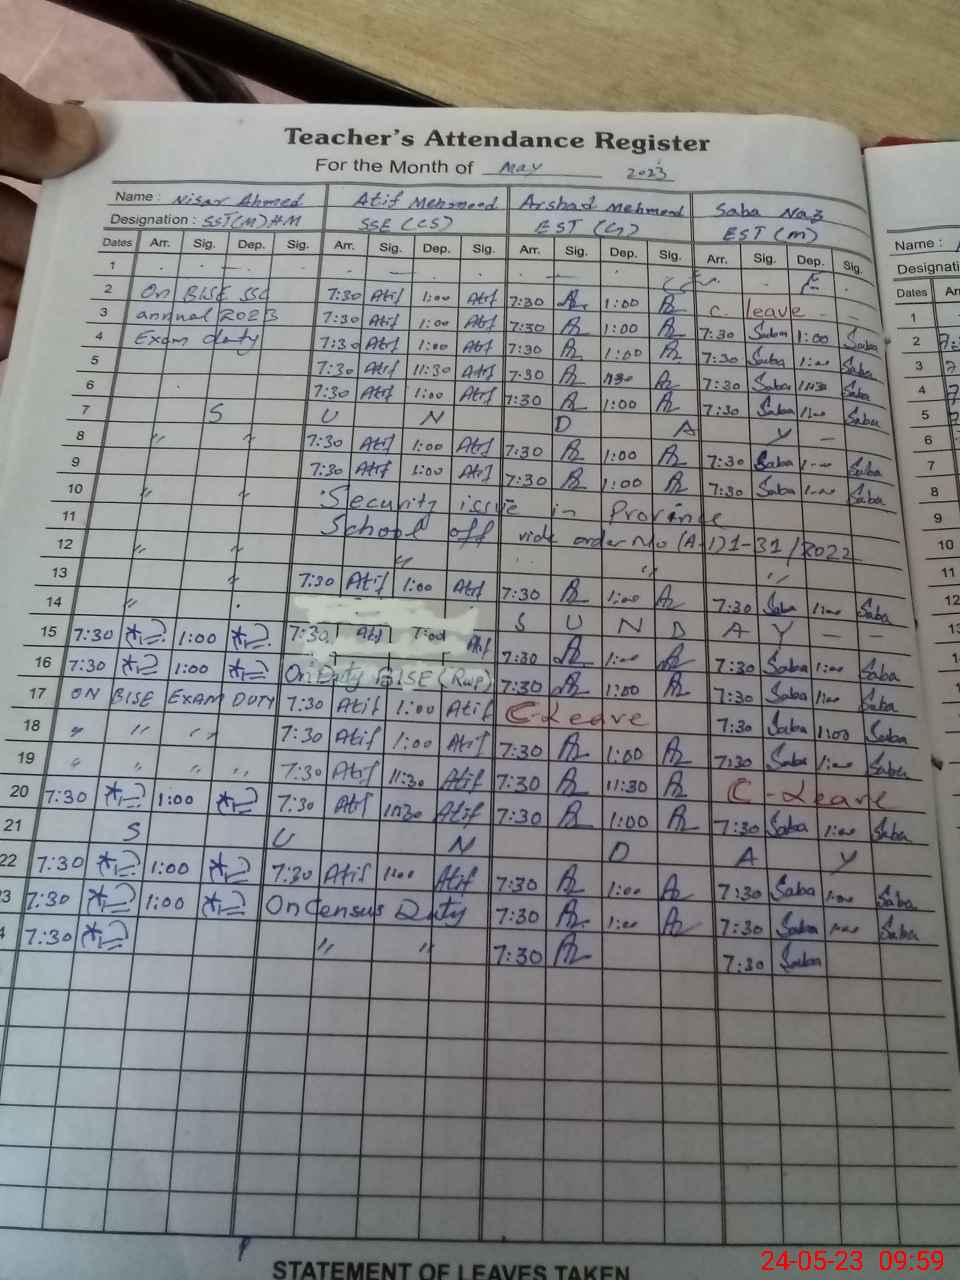 Teacher's Attendance Register
For the Month of May 2023
Name : Nisar Ahmed Atif Mehmood Arshad Mehmood Saba Naz Name :
Designation : SST(M)HM SSE (CS) EST (G) EST (M)
Dates Arr. Sig. Dep. Sig. Arr. Sig. Dep. Sig. Arr. Sig. Dep. Sig. Arr. Sig. Dep. Sig. Dates
1
2 On BISE SSC 7:30 Atif 1:00 Atif 7:30 1:00 C. leave
3 annual 2023 7:30 Atif 1:00 Atif 7:30 1:00 7:30 Saba 1:00 Saba
4 Exam duty 7:30 Atif 1:00 Atif 7:30 1:00 7:30 Saba 1:00 Saba
5 7:30 Atif 11:30 Atif 7:30 11:30 7:30 Saba 11:30 Saba
6 7:30 Atif 1:00 Atif 7:30 1:00 7:30 Saba 1:00 Saba
7 S U N D A Y
8 " " 7:30 Atif 1:00 Atif 7:30 1:00 7:30 Saba 1:00 Saba
9 7:30 Atif 1:00 Atif 7:30 1:00 7:30 Saba 1:00 Saba
10 " " Security issue in Province
11 School off vide order No (A-1)1-31/2022
12 " " " " "
13 " 7:30 Atif 1:00 Atif 7:30 1:00 7:30 Saba 1:00 Saba
14 " S U N D A Y
15 7:30 1:00 7:30 Atif 7:00 Atif 7:30 1:00 7:30 Saba 1:00 Saba
16 7:30 1:00 On Duty BISE (RWP) 7:30 1:00 7:30 Saba 1:00 Saba
17 ON BISE EXAM DUTY 7:30 Atif 1:00 Atif C-Leave 7:30 Saba 1:00 Saba
18 " " " 7:30 Atif 1:00 Atif 7:30 1:00 7:30 Saba 1:00 Saba
19 " " " " 7:30 Atif 11:30 Atif 7:30 11:30 C-Leave
20 7:30 1:00 7:30 Atif Atif 7:30 1:00 7:30 Saba 1:00 Saba
21 S U N D A Y
22 7:30 1:00 7:30 Atif 1:00 Atif 7:30 1:00 7:30 Saba 1:00 Saba
3 7:30 1:00 On Census Duty 7:30 1:00 7:30 Saba Saba
4 7:30 " " 7:30 7:30 Saba
STATEMENT OF LEAVES TAKEN
24-05-23 09:59